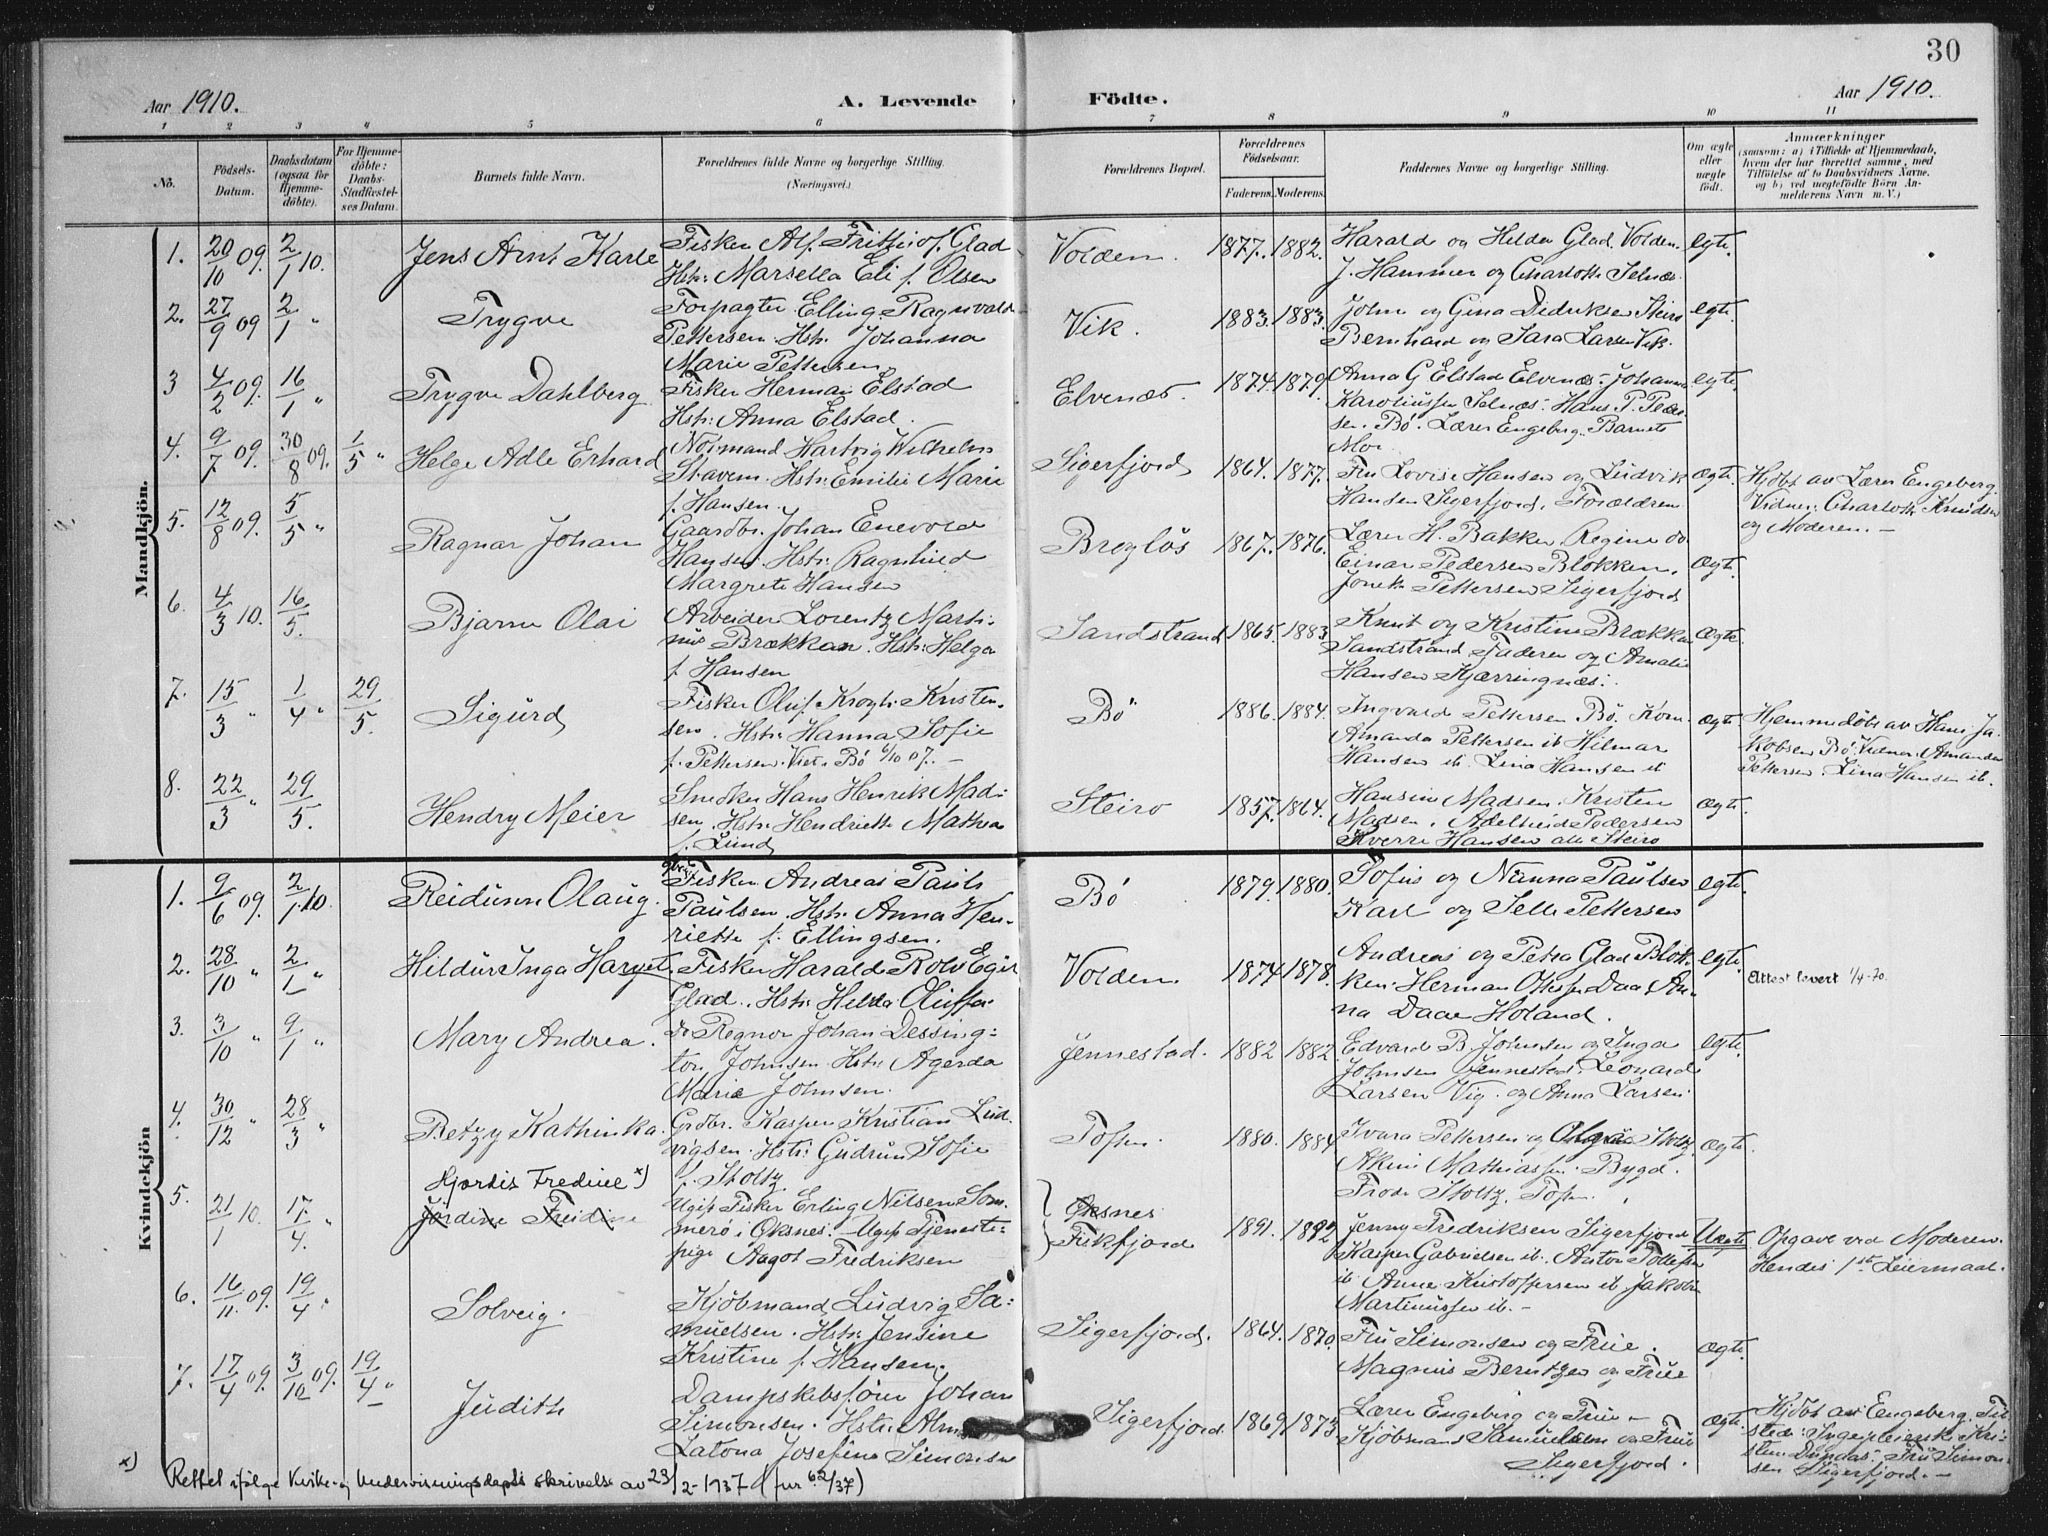 30
Aar 1910.
A. Levende Födte.
Aar 1910.
1 2 3 4 5 6 7 8 9 10 11
No.
Födsels-Datum.
Daabsdatum (ogsaa for Hjemmedöbte).
For Hjemmedöbte: Daabs-Stadfæstelses Datum.
Barnets fulde Navn.
Forældrenes fulde Navne og borgerlige Stilling. (Næringsvei.)
Forældrenes Bopæl.
Forældrenes Födselsaar.
Faderens. Moderens.
Faddernes Navne og borgerlige Stilling.
Om ægte eller uægte födt.
Anmærkninger
(saasom: a) i Tilfælde af Hjemmedaab, hvem der har forrettet samme, med Tilföielse af to Daabsvidners Navne, og b) ved uægtefödte Börn Anmelderens Navn m. V.)
Mandkjön.
1. 20/10 09. 2/1 10. Jens Arnt Karle
Fisker Alf Fritjof Glad
Hstr: Marsella Eli f. Olsen
Volden. 1877. 1882.
Harald og Helda Glad Volden.
J. Hammer og Charlotte Selnæs.
egte.
2. 27/9 09 2/1 " Trygve
Forpagter Elling Ragnvald
Pettersen. Hstr. Johanna
Marie Pettersen
Vik. 1883. 1883.
John og Gina Didriksen Steiro
Bernhard og Sara Larsen Vik.
egte.
3 4/2 09. 16/1 " Trygve Dahlberg
Fisker Herman Elstad
Hstr: Anna Elstad.
Elvenæs. 1874. 1879.
Anna G Elstad Elvenæs. Johanna
Karoliussen Selnæs. Hans P. Peder
sen. Bö. Lærer Engeberg. Barnets
Mor
egte.
4. 9/7 09. 30/8 09. 1/5 " Helge Adle Erhard
Nordmand Hartvig Wilhelm
Stavem. Hstr: Emilie Marie
f. Hansen.
Sigerfjord 1864. 1877.
Fru Lovise Hansen og Ludvik
Hansen Sigerfjord. Forældren
ægte.
Hjdbt av Lærer Engeberg.
Vidner: Charlotte Knudsen
og Moderen. —
5. 12/8 09. 5/5 " Ragnar Johan
Gaardbr. Johan Enevold
Hansen. Hstr: Ragnhild
Margrete Hansen
Breglös 1867. 1876.
Lærer H. Bakken, Regine og
Einar Pedersen Blokken.
Pettersen Sigerfjord
ægte.
6. 4/3 10. 16/5. Bjarne Olai
Arbeider Lorentz Marti:
nus Brækkan. Hstr: Helga
f. Hansen
Sandstrand 1865. 1883
Knut og Kristine Brækkan
Sandstrand. Faderen og Amalie
Hansen Kjærringnæs.
ægte
7. 15/3 " 1/4 " 29/5. Sigurd
Fisker Oluf Krogh Kristen
sen. Hstr: Hanna Sofie
f. Pettersen. Viet i Bö 6/10 07. —
Bö 1886. 1884.
Ingvald Pettersen Bö. Kon
Amanda Pettersen ib Hilmar
Hansen ib. Lina Hansen ib
ægte.
Hjemmedöbt av Hans Ja
kobsen Bö. Vidner: Amanda
Pettersen. Lina Hansen ib.
8. 22/3 " 29/5. Hendry Meier
Snedker Hans Henrik Mad:
sen. Hstr: Hendrikke Mathea
f. Lund
Steiro 1857. 1864.
Hansine Madsen. Kristen
Madsen. Adelheid Pedersen
Sverre Hansen alle Steiro
ægte.
Kvindekjön
1. 9/6 09. 2/1. 10. Reidunn Olaug.
Fisker Andreas Pauls
Paulsen. Hstr: Anna Hen
riette f. Ellingsen.
Bö 1879. 1880.
Sofus og Nanna Paulsen
Karl og Selle Pettersen
egte.
2. 28/10 " 2/1 " Hildur Inga Marget.
Fisker Harald Rolv Egil
Glad. Hstr: Helda
Volden. 1874 1878.
Andreas og Petra Glad Blok
ken. Herman Daa An
na Daae Holand.
egte.
Attest levert 1/4-70.
3. 3/10 " 9/1 " Mary Andrea.
do Regnor Johan Dessing:
ton Johnsen. Hstr: Agerda
Marie Johnsen.
Jennestad. 1882 1882
Edvard B. Johnsen og Inga
Johnsen Jennestad. Leonard
Larsen Vig. og Anna Larsen.
egte.
4. 30/12 " 28/3 " Betzy Kathinka.
Grdbr. Kasper Kristian Lud
vigsen. Hstr: Gudrun Sofie
f. Stoltz.
Toften. 1880. 1884
Ivara Pettersen og Olga Stoltz
Mathiassen. Bygd.
Frode Stoltz. Toften.
ægte.
5. 21/1 10. 17/4. " Hjørdis Fredine x)
Jördine Freidine
Ugift Fisker Erling Nilsen Som
merö i Öksnes. Ugift Tjeneste
pige Aagot Fredriksen
Öksnes
Fiskfjord
1891. 1892
Jenny Fredriksen Sigerfjord
Kasper Gabrielsen ib. Anton
ib Anne Kristoffersen ib Jakob
Martinussen ib. —
Uægte
Opgave ved Moderen.
Hendes 1ste Leiermaal.
6. 16/11 09. 19/4 " Solveig.
Kjöbmand Ludvig Sa:
muelsen. Hstr: Jensine
Kristine f. Hansen.
Sigerfjord. 1864. 1870.
Fru Simonsen og Frue.
Magnus Berntzen og Frue
ægte.
7. 17/4 09. 3/10 09. 19/4 " Judith
Dampskibsförer Johan
Simonsen. Hstr: Alma
Latona Josefine Simonsen
Sigerfjord 1869 1873
Lærer Engeberg og Frue —
Kjöbmand Samuelsen og Frue
Sigerfjord.
ægte.
Hjdbt av Engeberg. Til
stede: Kri
sten Dundas. Fru Simon
sen Sigerfjord. —
x) Rettet ifølge Kirke- og Undervisningsdepts skrivelse av 23/2-1937 (jnr 62/37)